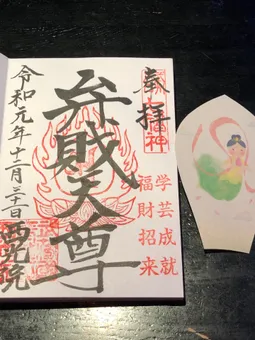 奉拝
弁財天尊
学芸成就
福財招来
令和元年十二月三十一日